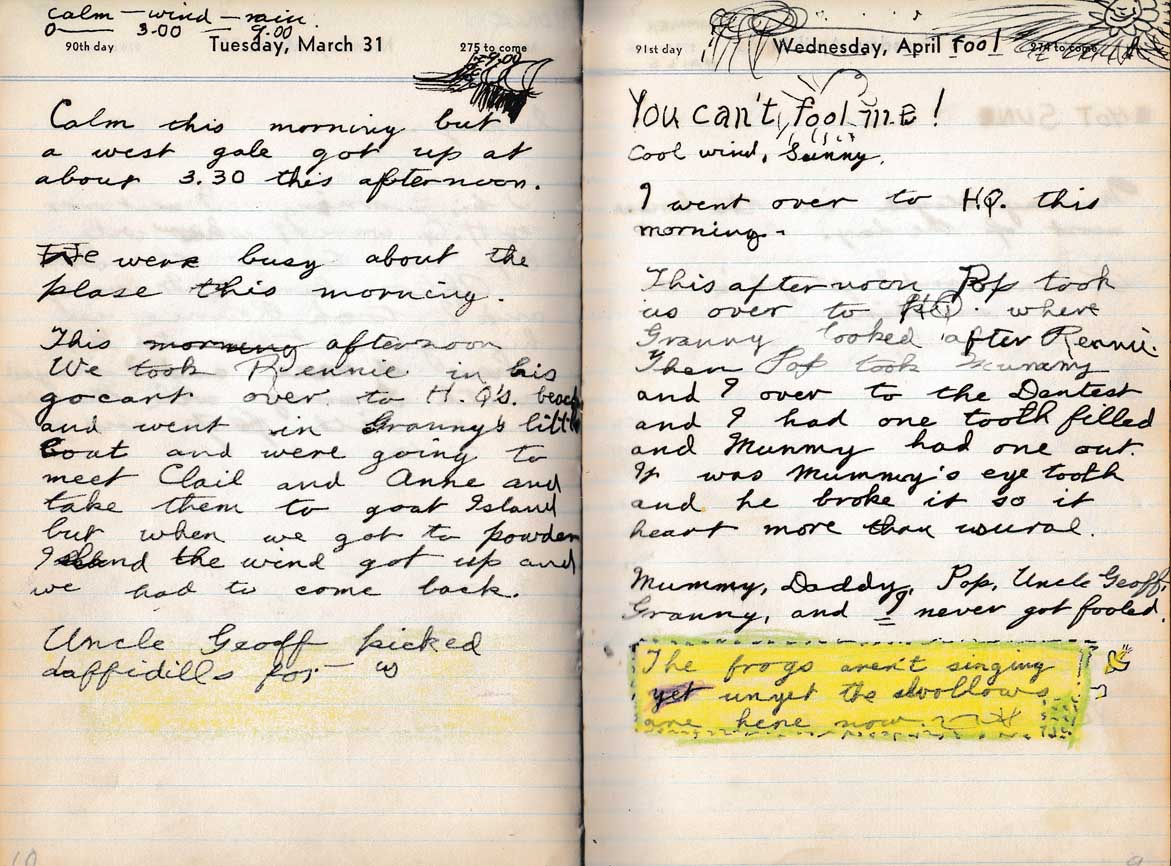 calm — wind — rain.
0— 3.00 — 9.00
90th day Tuesday, March 31 275 to come
9.00
Calm this morning but
a west gale got up at
about 3.30 this afternoon.
We were busy about the
plase this morning.
This morning afternoon
We took Rennie in his
gocart over to H.Q's. beach
and went in Granny's little
boat and were going to
meet Clail and Anne and
take them to goat Island
but when we got to powder
Island the wind got up and
we had to come back.
Uncle Geoff picked
daffidills for — us
91st day Wednesday, April fool 274 to come
You can't fool me!
Cool wind, Sunny.
I went over to H.Q. this
morning.
This afternoon Pop took
us over to H.Q. where
Granny looked after Rennie.
Then Pop took Mummy
and I over to the Dentest
and I had one tooth filled
and Mummy had one out.
It was Mummy's eye tooth
and he broke it so it
heart more than usural.
Mummy, Daddy, Pop, Uncle Geoff,
Granny, and I never got fooled.
The frogs aren't singing
yet unyet the swollows
are here now.